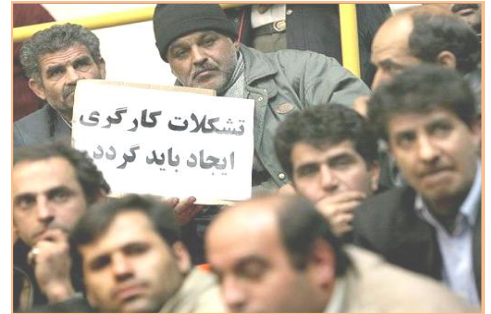 تشکلات کارگری
ایجاد باید گردد